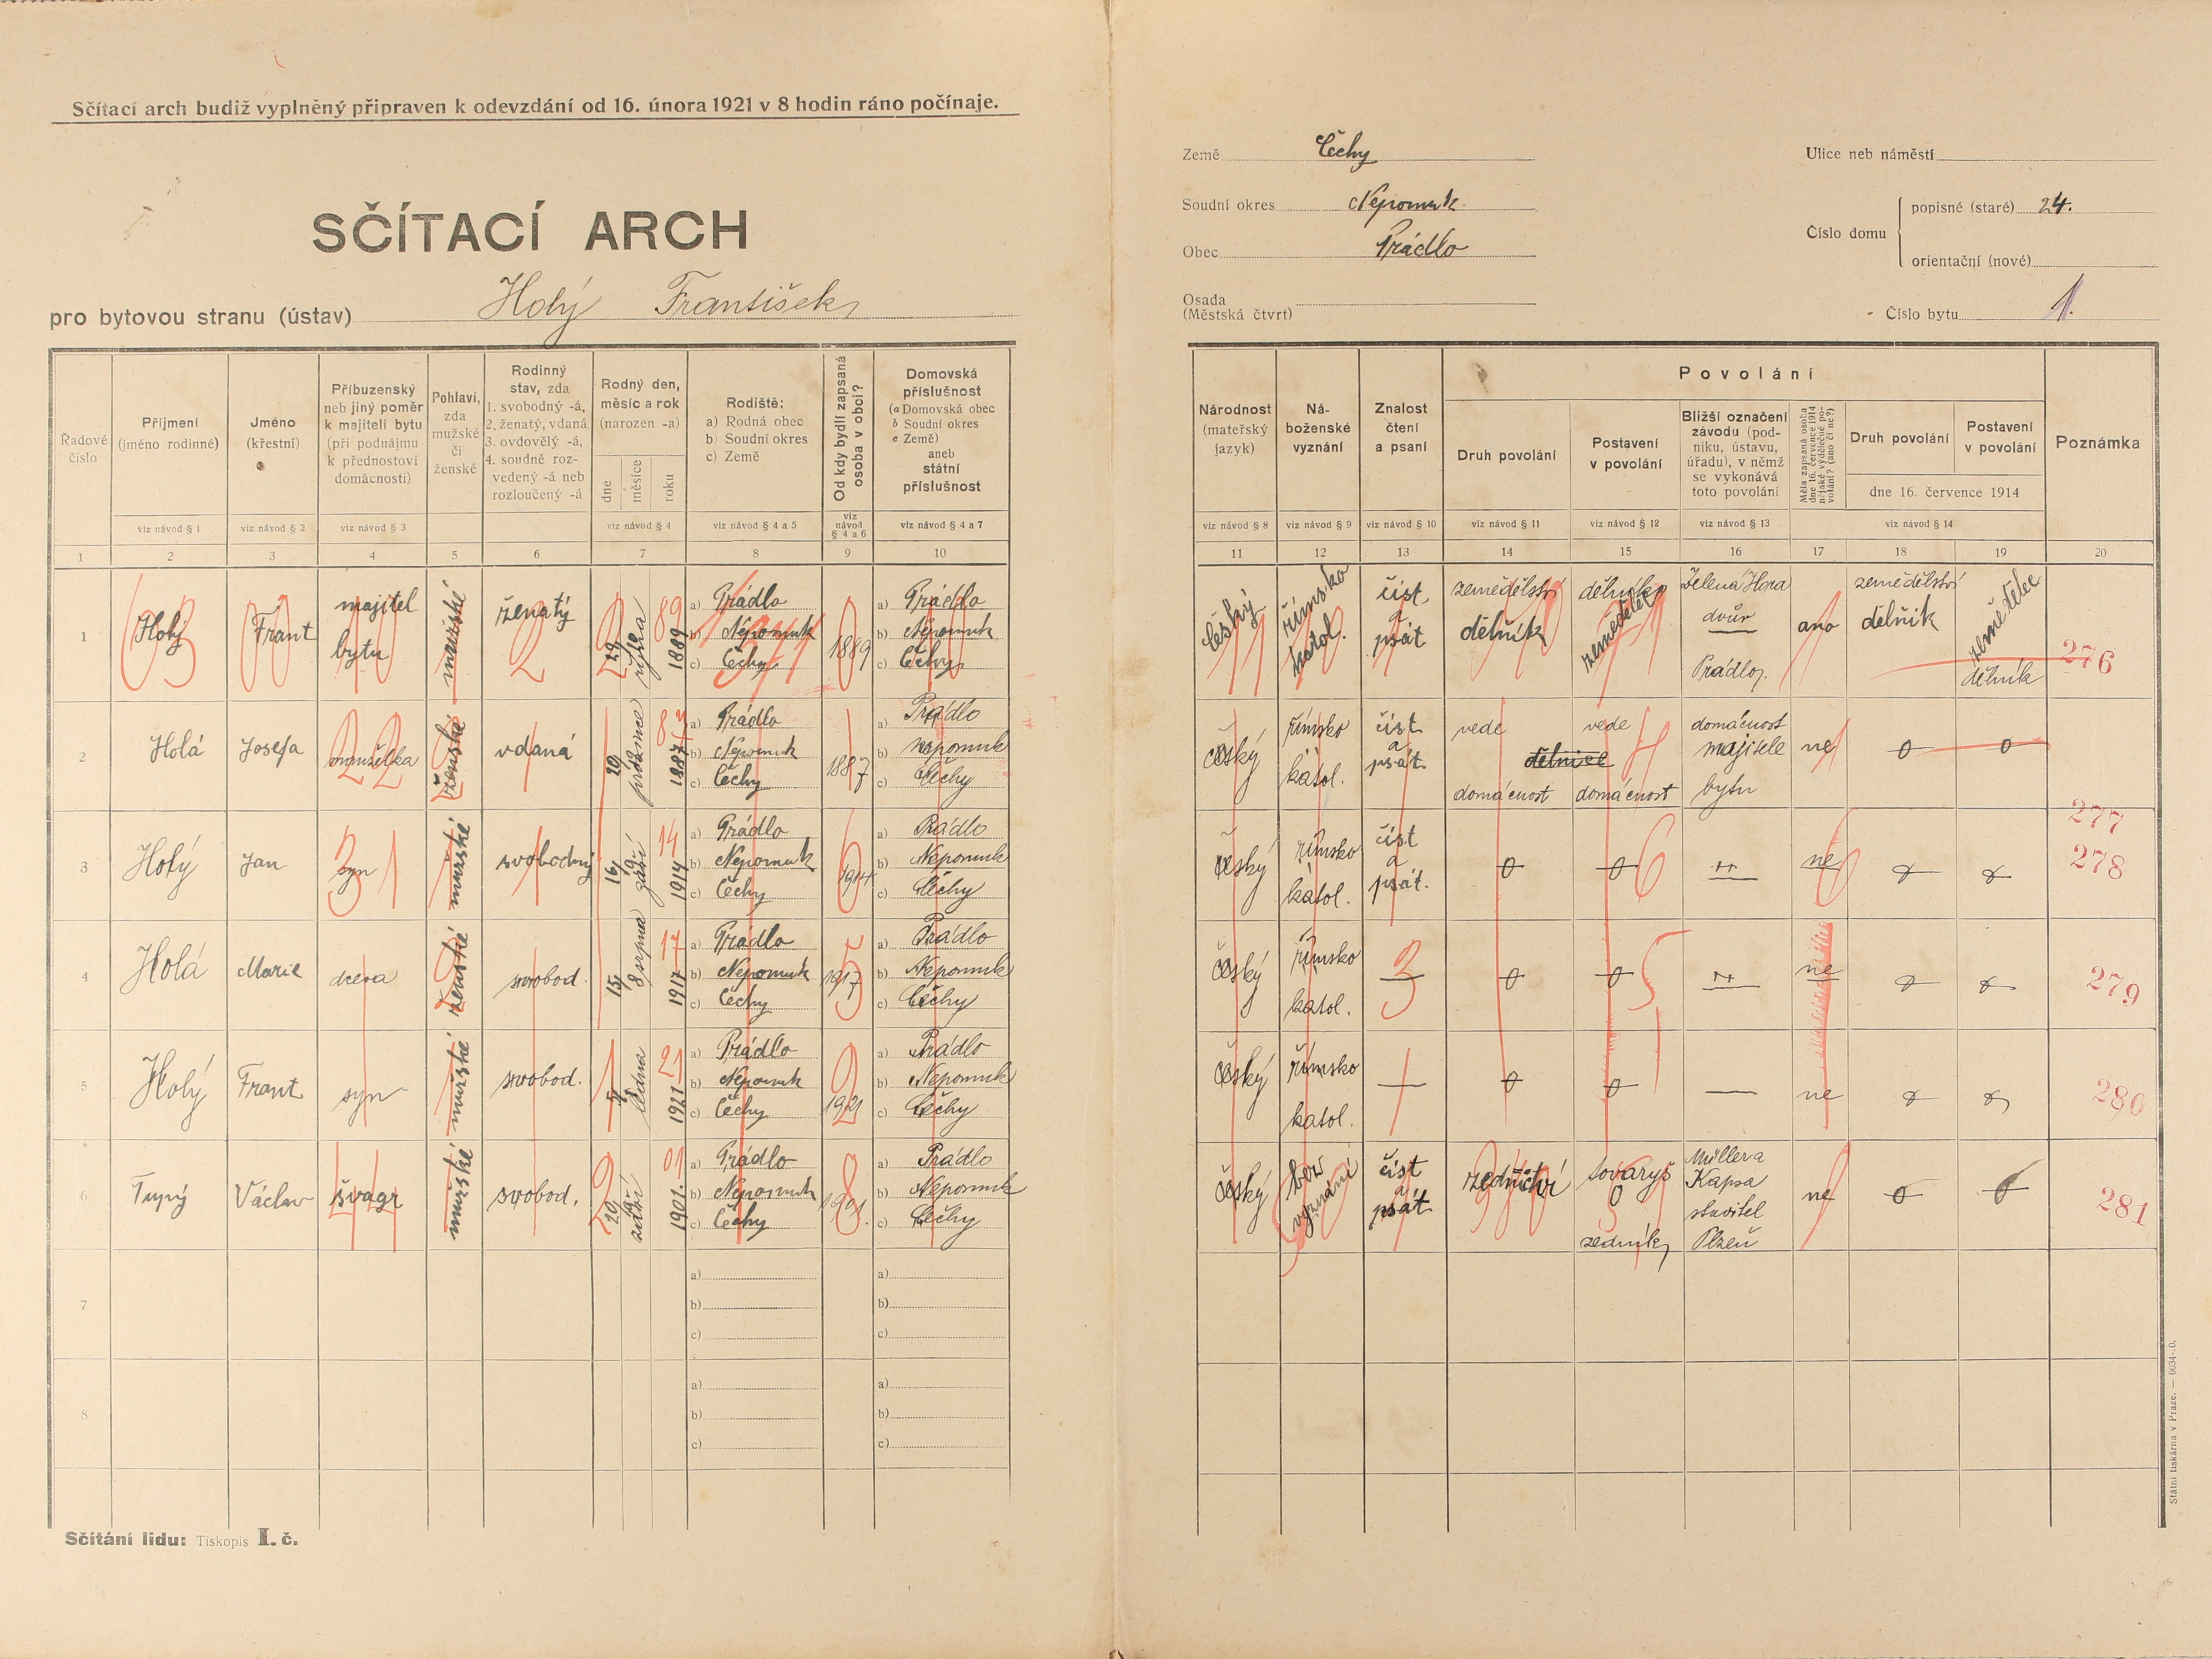 Sčítací arch budiž vyplněný připraven k odevzdání od 16. února 1921 v 8 hodin ráno počínaje.
SČÍTACÍ ARCH
pro bytovou stranu (ústav) Holý František
Země Čechy
Soudní okres Nepomuk
Obec Prádlo
Osada
(Městská čtvrt)
Ulice neb náměstí
Číslo domu
popisné (staré) 24.
orientační (nové)
Číslo bytu 1.
Řadové číslo
Příjmení (jméno rodinné)
Jméno (křestní)
Příbuzenský neb jiný poměr k majiteli bytu (při podnájmu k přednostovi domácnosti)
Pohlaví, zda mužské či ženské
Rodinný stav, zda 1. svobodný -á, 2. ženatý, vdaná 3. ovdovělý -á, 4. soudně rozvedený -á neb rozloučený -á
Rodný den, měsíc a rok (narozen -a)
dne měsíce roku
Rodiště:
a) Rodná obec
b) Soudní okres
c) Země
Od kdy bydlí zapsaná osoba v obci?
Domovská příslušnost
(a Domovská obec
b Soudní okres
c Země)
aneb
státní příslušnost
viz návod § 1 viz návod § 2 viz návod § 3 viz návod § 4 viz návod § 4 a 5 viz návod § 4 a 6 viz návod § 4 a 7
1 2 3 4 5 6 7 8 9 10
1 Holý Frant majitel bytu mužské ženatý 29 října 1889 89
a) Prádlo
b) Nepomuk
c) Čechy
1889
a) Prádlo
b) Nepomuk
c) Čechy
2 Holá Josefa manželka ženské vdaná 20 prosince 1887 87
a) Prádlo
b) Nepomuk
c) Čechy
1887
a) Prádlo
b) nepomuk
c) Čechy
3 Holý Jan syn mužské svobodný 16 září 1914 14
a) Prádlo
b) Nepomuk
c) Čechy
1914
a) Prádlo
b) Nepomuk
c) Čechy
4 Holá Marie dcera ženské svobod. 15 srpna 1917 17
a) Prádlo
b) Nepomuk
c) Čechy
1917
a) Prádlo
b) Nepomuk
c) Čechy
5 Holý Frant syn mužské svobod. ledna 1921 21
a) Prádlo
b) Nepomuk
c) Čechy
1921
a) Prádlo
b) Nepomuk
c) Čechy
6 Tupý Václav švagr mužské svobod. 20 září 1901. 01
a) Prádlo
b) Nepomuk
c) Čechy
1901.
a) Prádlo
b) Nepomuk
c) Čechy
7
a)
b)
c)
a)
b)
c)
8
a)
b)
c)
a)
b)
c)
Sčítání lidu: Tiskopis I. č.
Národnost (mateřský jazyk)
Náboženské vyznání
Znalost čtení a psaní
Povolání
Druh povolání
Postavení v povolání
Bližší označení závodu (podniku, ústavu, úřadu), v němž se vykonává toto povolání
Měla zapsaná osoba dne 16. července 1914 nějaké výdělečné povolání? (ano či ne?)
Druh povolání
Postavení v povolání
dne 16. července 1914
Poznámka
viz návod § 8 viz návod § 9 viz návod § 10 viz návod § 11 viz návod § 12 viz návod § 13 viz návod § 14
11 12 13 14 15 16 17 18 19 20
český římsko katol. číst a psát zemědělství dělník dělník Zelená Hora dvůr Prádlo, ano zemědělství dělník zemědělec dělník 276
český římsko katol. číst a psát vede dělnice domácnost vede domácnost domácnost majitele bytu ne 0 0 277
český římsko katol. číst a psát. 0 0 ne 278
český římsko katol. — 0 0 ne 279
český římsko katol. — 0 0 — ne 280
český bez vyznání číst a psát zednictví tovaryš zedník Müller a Kapsa stavitel Plzeň ne 0 0 281
Státní tiskárna v Praze. — 6034-.0.